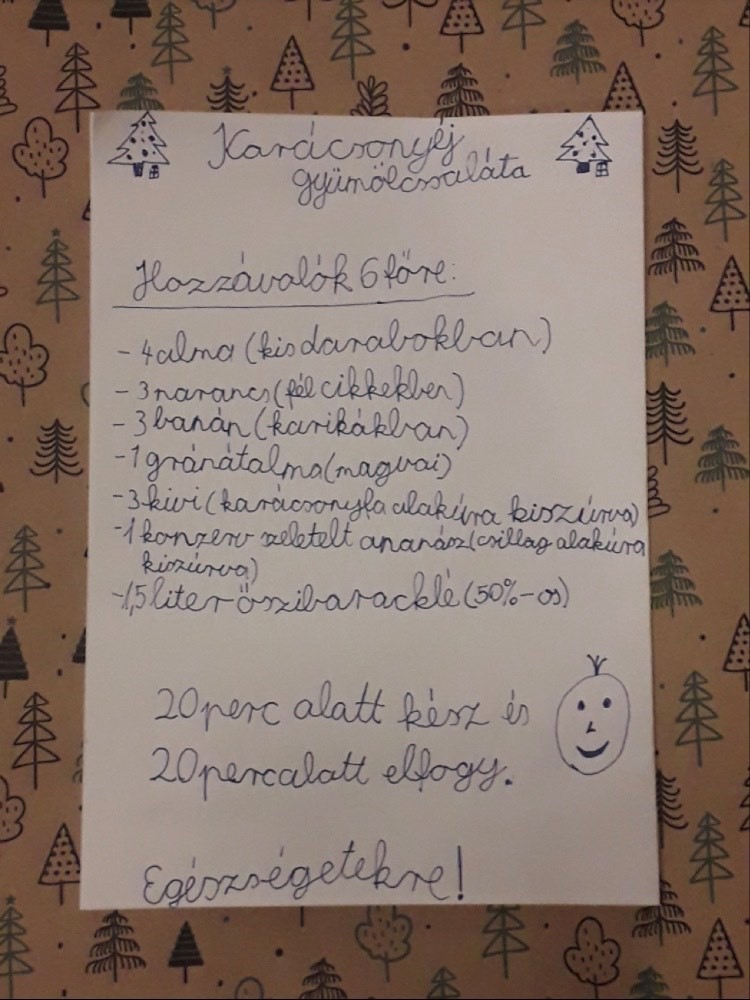 Karácsonyéj
gyümölcssaláta
Hozzávalók 6 főre:
- 4 alma (kis darabokban)
- 3 narancs (fél cikkekben)
- 3 banán (karikákban)
- 1 gránátalma (magvai)
- 3 kiwi (karácsonyfa alakúra kiszúrva)
- 1 konzerv szeletelt ananász (csillag alakúra
kiszúrva)
- 1,5 liter őszibaracklé (50%-os)
20 perc alatt kész és
20 perc alatt elfogy.
Egészségetekre!